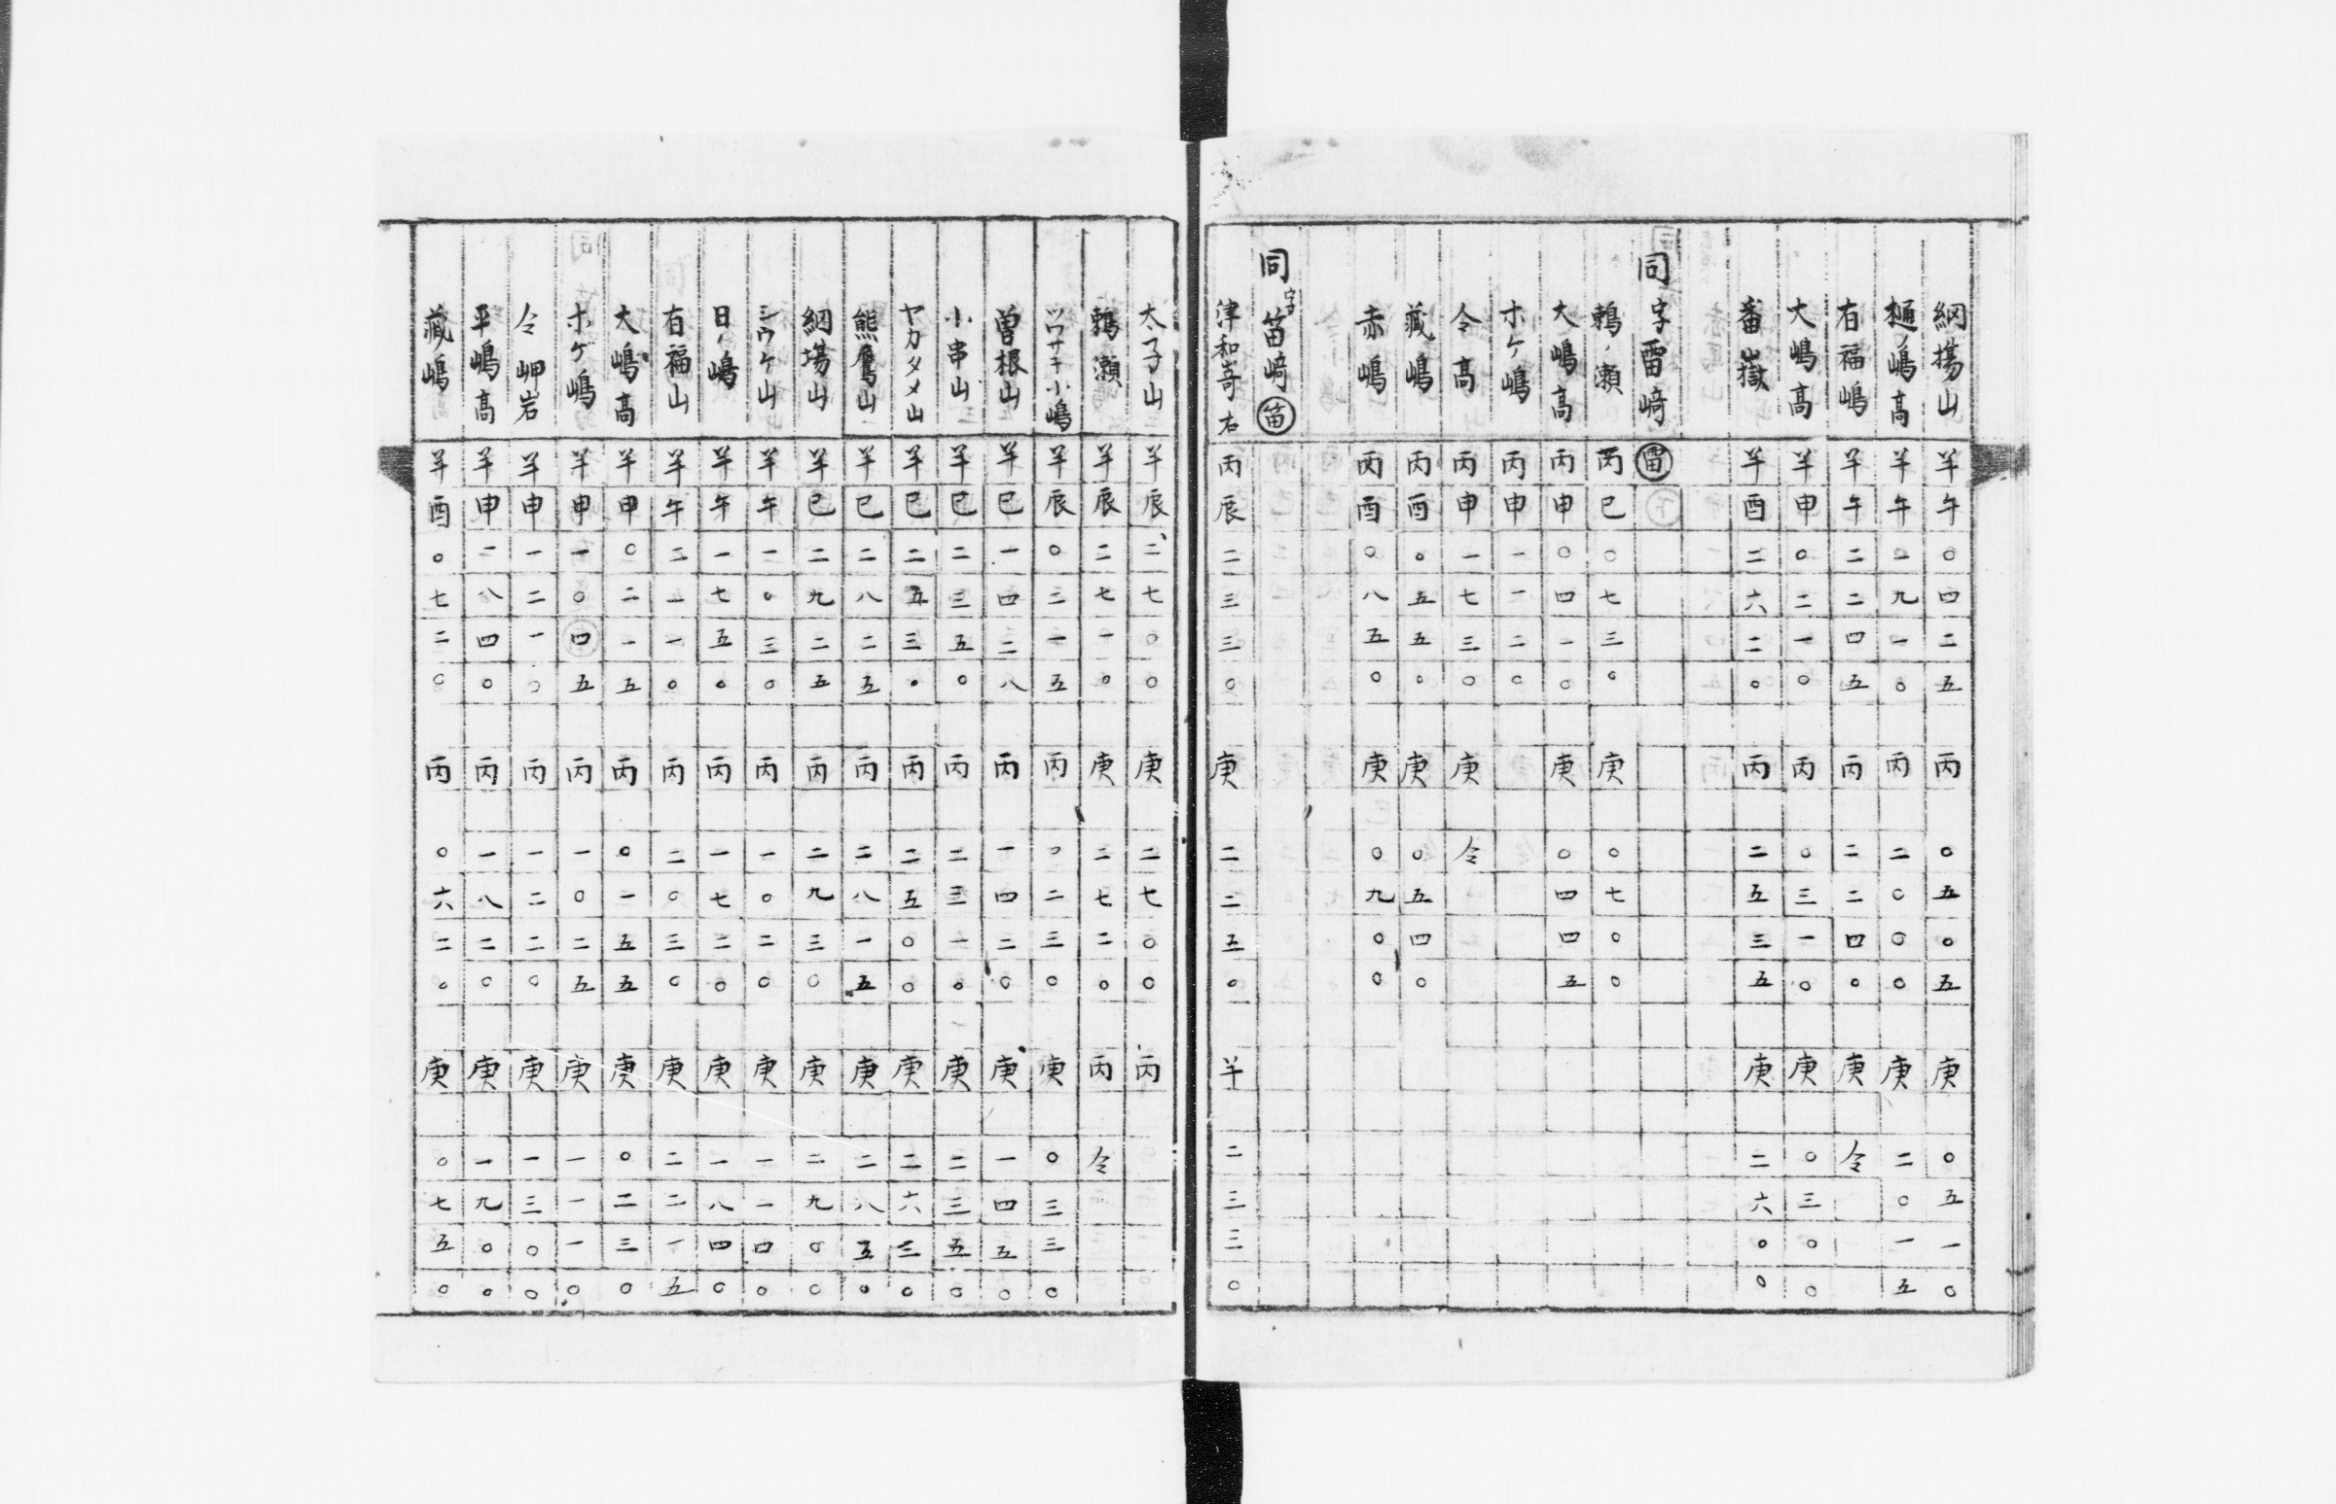 網揚山 羊午〇四二五 丙〇五〇五 庚〇五一〇
樋ノ嶋高 羊午一九一〇 丙二〇〇〇 庚二〇一五
有福嶋 羊午二二四五 丙二二四〇 庚令
大嶋高 羊申〇二一〇 丙〇三一〇 庚〇三〇〇
番嶽 羊酉二六二〇 丙二五三五 庚二六〇〇
同 字雷﨑 雷
鵜ノ瀬 丙巳〇七三〇 庚〇七〇〇
大嶋高 丙申〇四一〇 庚〇四四五
ホケ嶋 丙申一一二〇
令高 丙申一七三〇 庚令
蔵嶋 丙酉〇五五〇 庚〇五四〇
赤嶋 丙酉〇八五〇 庚〇九〇〇
同 字笛﨑 笛
津和﨑右 丙辰二三三〇 庚二二五〇 羊二三三〇
太子山 羊辰二七〇〇 庚二七〇〇 丙
鵜瀬 羊辰二七一〇 庚二七二〇 丙令
ツワサキ小嶋 羊辰〇三一五 丙〇二三〇 庚〇三三〇
曽根山 羊巳一四二八 丙一四二〇 庚一四五〇
小串山 羊巳二三五〇 丙二三一〇 庚二三五〇
ヤカタメ山 羊巳二五三〇 丙二五〇〇 庚二六三〇
熊鷹山 羊巳二八二五 丙二八一五 庚二八五〇
網揚山 羊巳二九二五 丙二九三〇 庚二九〇〇
シウケ山 羊午一〇三〇 丙一〇二〇 庚一一四〇
日ノ嶋 羊午一七五〇 丙一七二〇 庚一八四〇
有福山 羊午二一一〇 丙二〇三〇 庚二二一五
大嶋高 羊申〇二一五 丙〇一五五 庚〇二三〇
ホゲ嶋 羊申一〇四五 丙一〇二五 庚一一一〇
令岬岩 羊申一二一〇 丙一二二〇 庚一三〇〇
平嶋高 羊申一八四〇 丙一八二〇 庚一九〇〇
蔵嶋 羊酉〇七二〇 丙〇六二〇 庚〇七五〇